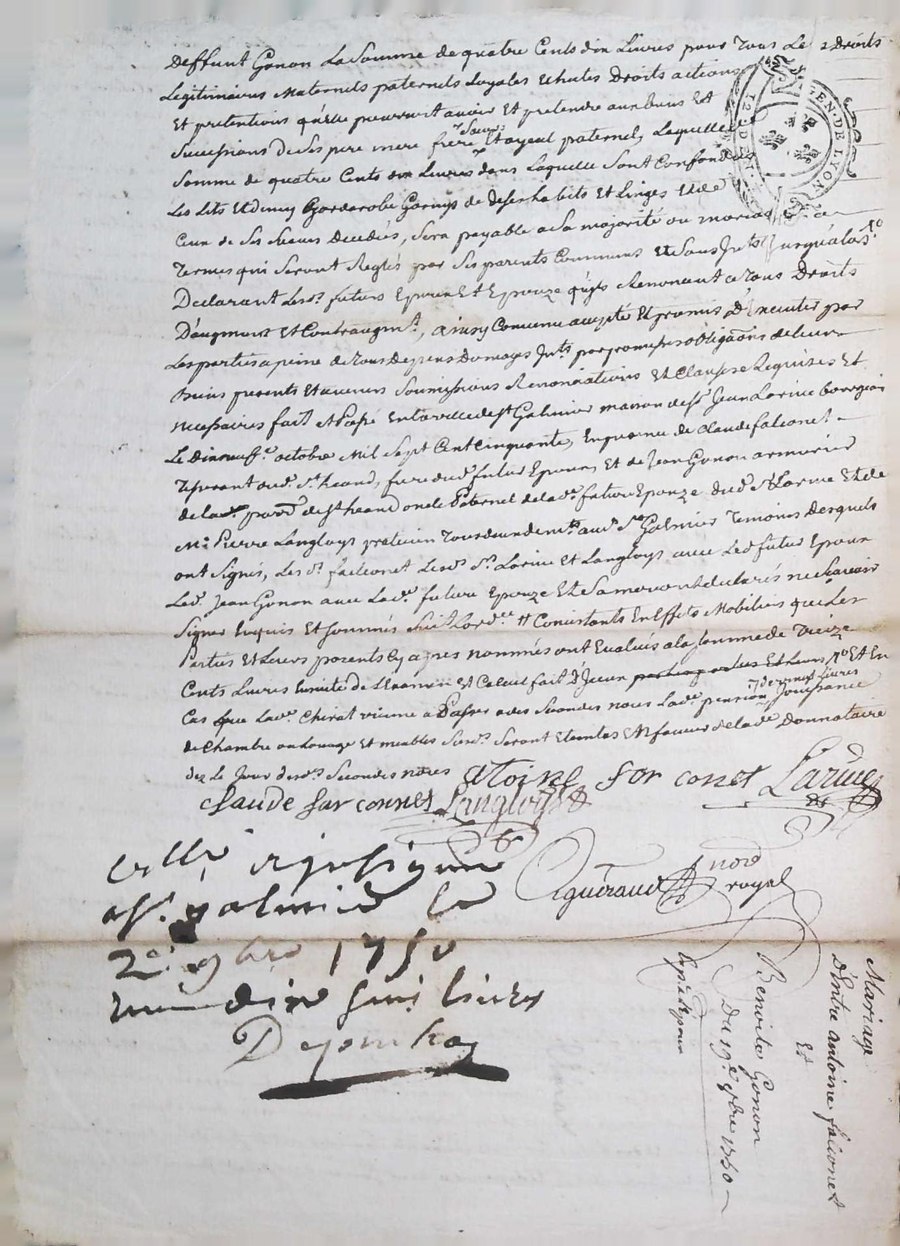 deffunt Gonon La Somme de quatre Cents dix Livres pour Tous Les Droits
Legitimaires Maternels paternels Loyales Et hutes Droits actions
Et pretentions qu'elle pourroit avoir Et pretendre aux biens Et
Successions de Ses pere mere frere Sœurs Et ayeul paternel, Laquelle
Somme de quatre Cents dix Livres dans Laquelle Sont Confondus
Les Lits Et Garderobe Garnys de Ses habits Et Linges Et de
Ceux de Ses Sœurs Decedées, Sera payable a Sa majorité ou mariage a
Termes qui Seront Reglés par Ses parents Communs Et Sans Jnts Jusqu'alors
Declarant Lesd. futurs Epoux Et Epouze qu'ils Renoncent a Tous Droits
D'augment Et Contraugmt, ainsy Convenu accepté Et promis D'Executer par
Les parties a peine de Tous Depens Domages Jnts par promesses obligaôns de leurs
biens presents Et avenirs Soumissions Renonciations Et Clauses Requises Et
necessaires fait Et Passé En la ville de St Galmier maison de Sr Jean Larive bourgeois
Le dix neufe. octobre Mil Sept Cent Cinquante, En presence de Claude falconet
Tisserant dud. St heand, frere dud. futur Epoux, Et de Jean Gonon armurier
de lad. parroi. de St heand oncle Paternel de lad. future Epouze dud. Sr Larive Et de
Me Pierre Langloys praticien Tous deux demts. aud. St Galmier Temoins Desquels
ont Signés, Les d. falconet Led. Sr. Larive Et Langloys avec Led. futur Epoux
Led. Jean Gonon avec Lad. future Epouze Et Sa mere ont declarés ne Sçavoir
Signer Enquis Et Sommés Suit Lord.ce Consistants En Effets Mobiliers que Les
Parties Et Leurs parents Cy apres nommés ont Evalués a la Somme de Treize
Cents Livres Ensuite de L'Examen Et Calcul fait D'Jceux Et En
Cas que Lad. Chirat vienne a Passer a des Secondes noces Lad. pension de vingt Livres Jouissance
de Chambre ou Louage Et meubles Susd. Seront Eteintes En faveur de lad. Donnataire
dez Le Jour desd. Secondes noces
atoine for conet Larive
claude far connet Langloys
Gueraud nore royal
collé
a St galmier Le
2e. 9bre 1750
dix huit livres
Mariage
D'Entre antoine falconet
Et
Benoite Gonon
Du 19e 8bre 1750